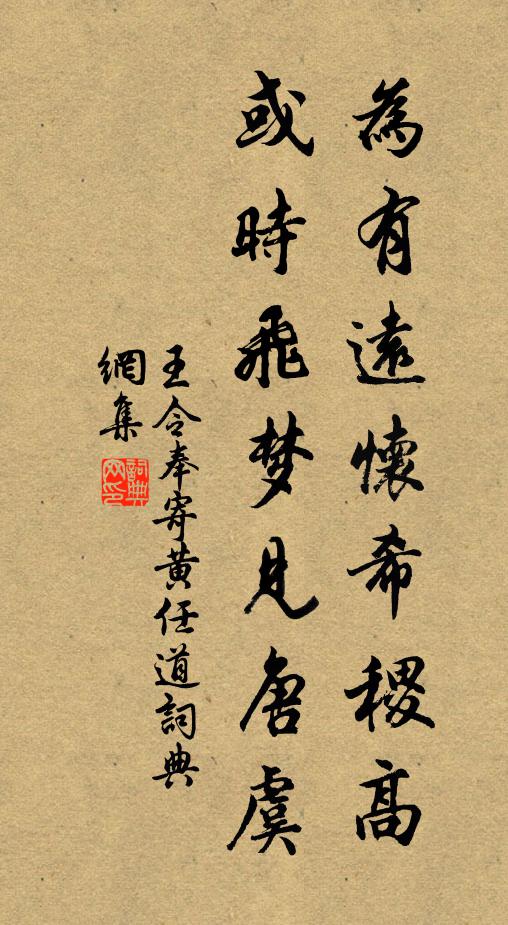 為有遠懷希稷高
或時飛梦見唐虞
王令奉寄黄任道詞典
網集
詞典
网印